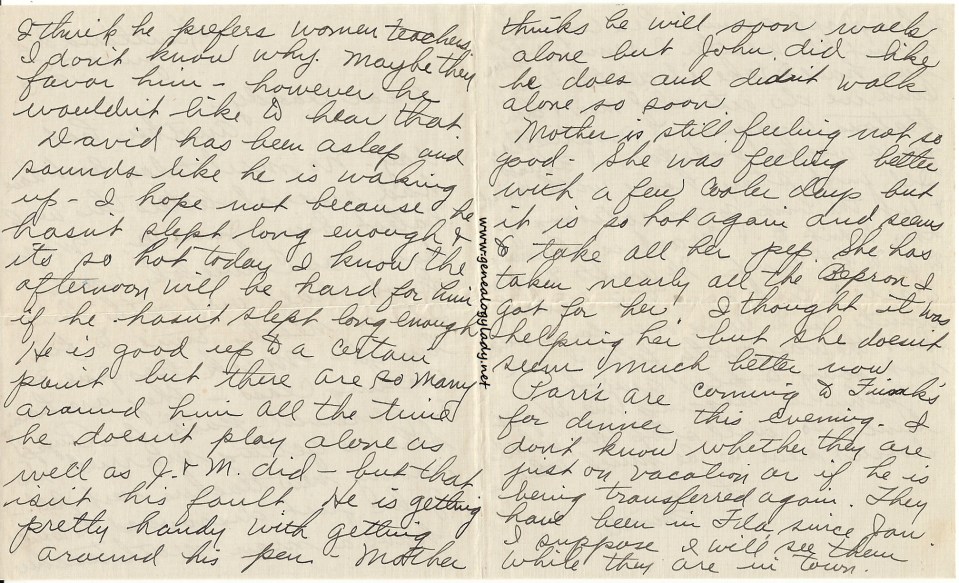 I think he prefers women teachers.
I don't know why. Maybe they
favor him – however he
wouldn't like to hear that.
David has been asleep and
sounds like he is waking
up – I hope not because he
hasn't slept long enough &
its so hot today I know the
afternoon will be hard for him
if he hasn't slept long enough
He is good up to a certain
point but there are so many
around him all the time
he doesn't play alone as
well as J. & M. did – but that
isn't his fault. He is getting
pretty handy with getting
around his pen – Mother
thinks he will soon walk
alone but John did like
he does and didn't walk
alone so soon.
Mother is still feeling not so
good – She was feeling better
with a few cooler days but
it is so hot again and seems
to take all her pep. She has
taken nearly all the Bepron I
got for her. I thought it was
helping her but she doesn't
seem much better now
Parr's are coming to
for dinner this evening. I
don't know whether they are
just on vacation or if he is
being transferred again. They
have been in Fla. since Jan.
I suppose I will see them
while they are in town.
www.genealogylady.net